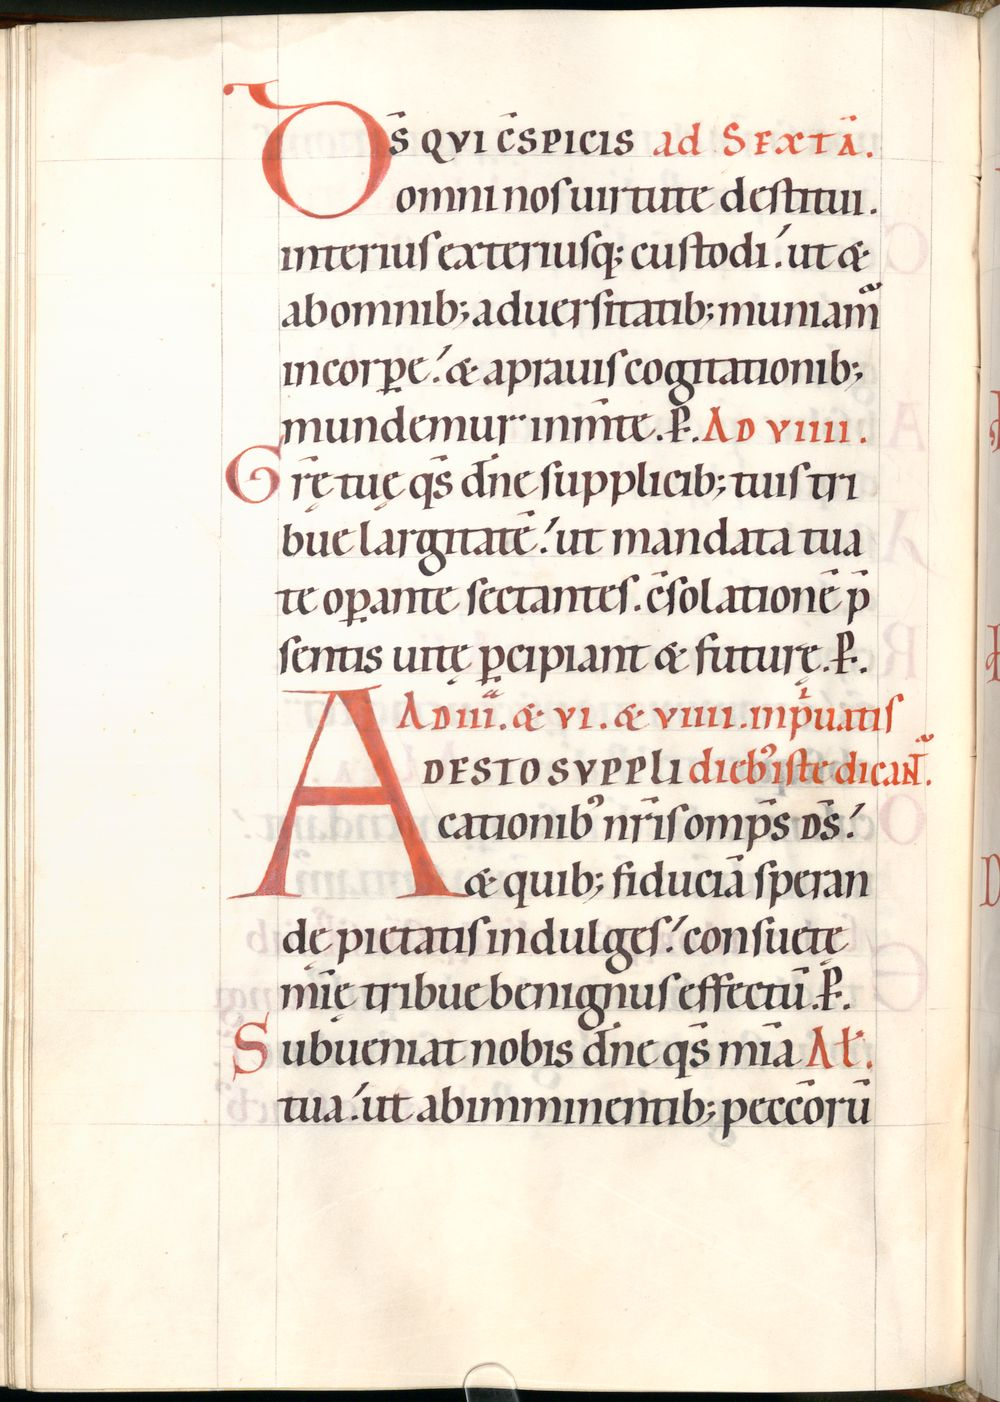 D̄S QVI C̄SPICIS ad SEXTĀ.
omni nos uirtute destitui.
interius exteriusq; custodi. ut &
ab omnib; aduersitatib; muniam̃
in corꝑe. & a prauis cogitationib;
mundemur in m̄te. P̄. AD VIIII.
Gr̄ę tuę qs̄ dn̄e supplicib; tuis tri
bue largitatē. ut mandata tua
te oꝑante sectantes. c̄solationē p̄
sentis uitę ꝑcipiant & futurę. P̄.
AD III. & VI. & VIIII. in p̄uatis
ADESTO SVPPLI dieb' iste dicant̃.
cationib' nr̄is omps̄ ds̄.
& quib; fiduciā speran
dę pietatis indulges. consuetę
mīę tribue benignus effectū. P̄.
Subueniat nobis dn̄e qs̄ mīa Al̄.
tua. ut ab imminentib; pecc̄orū